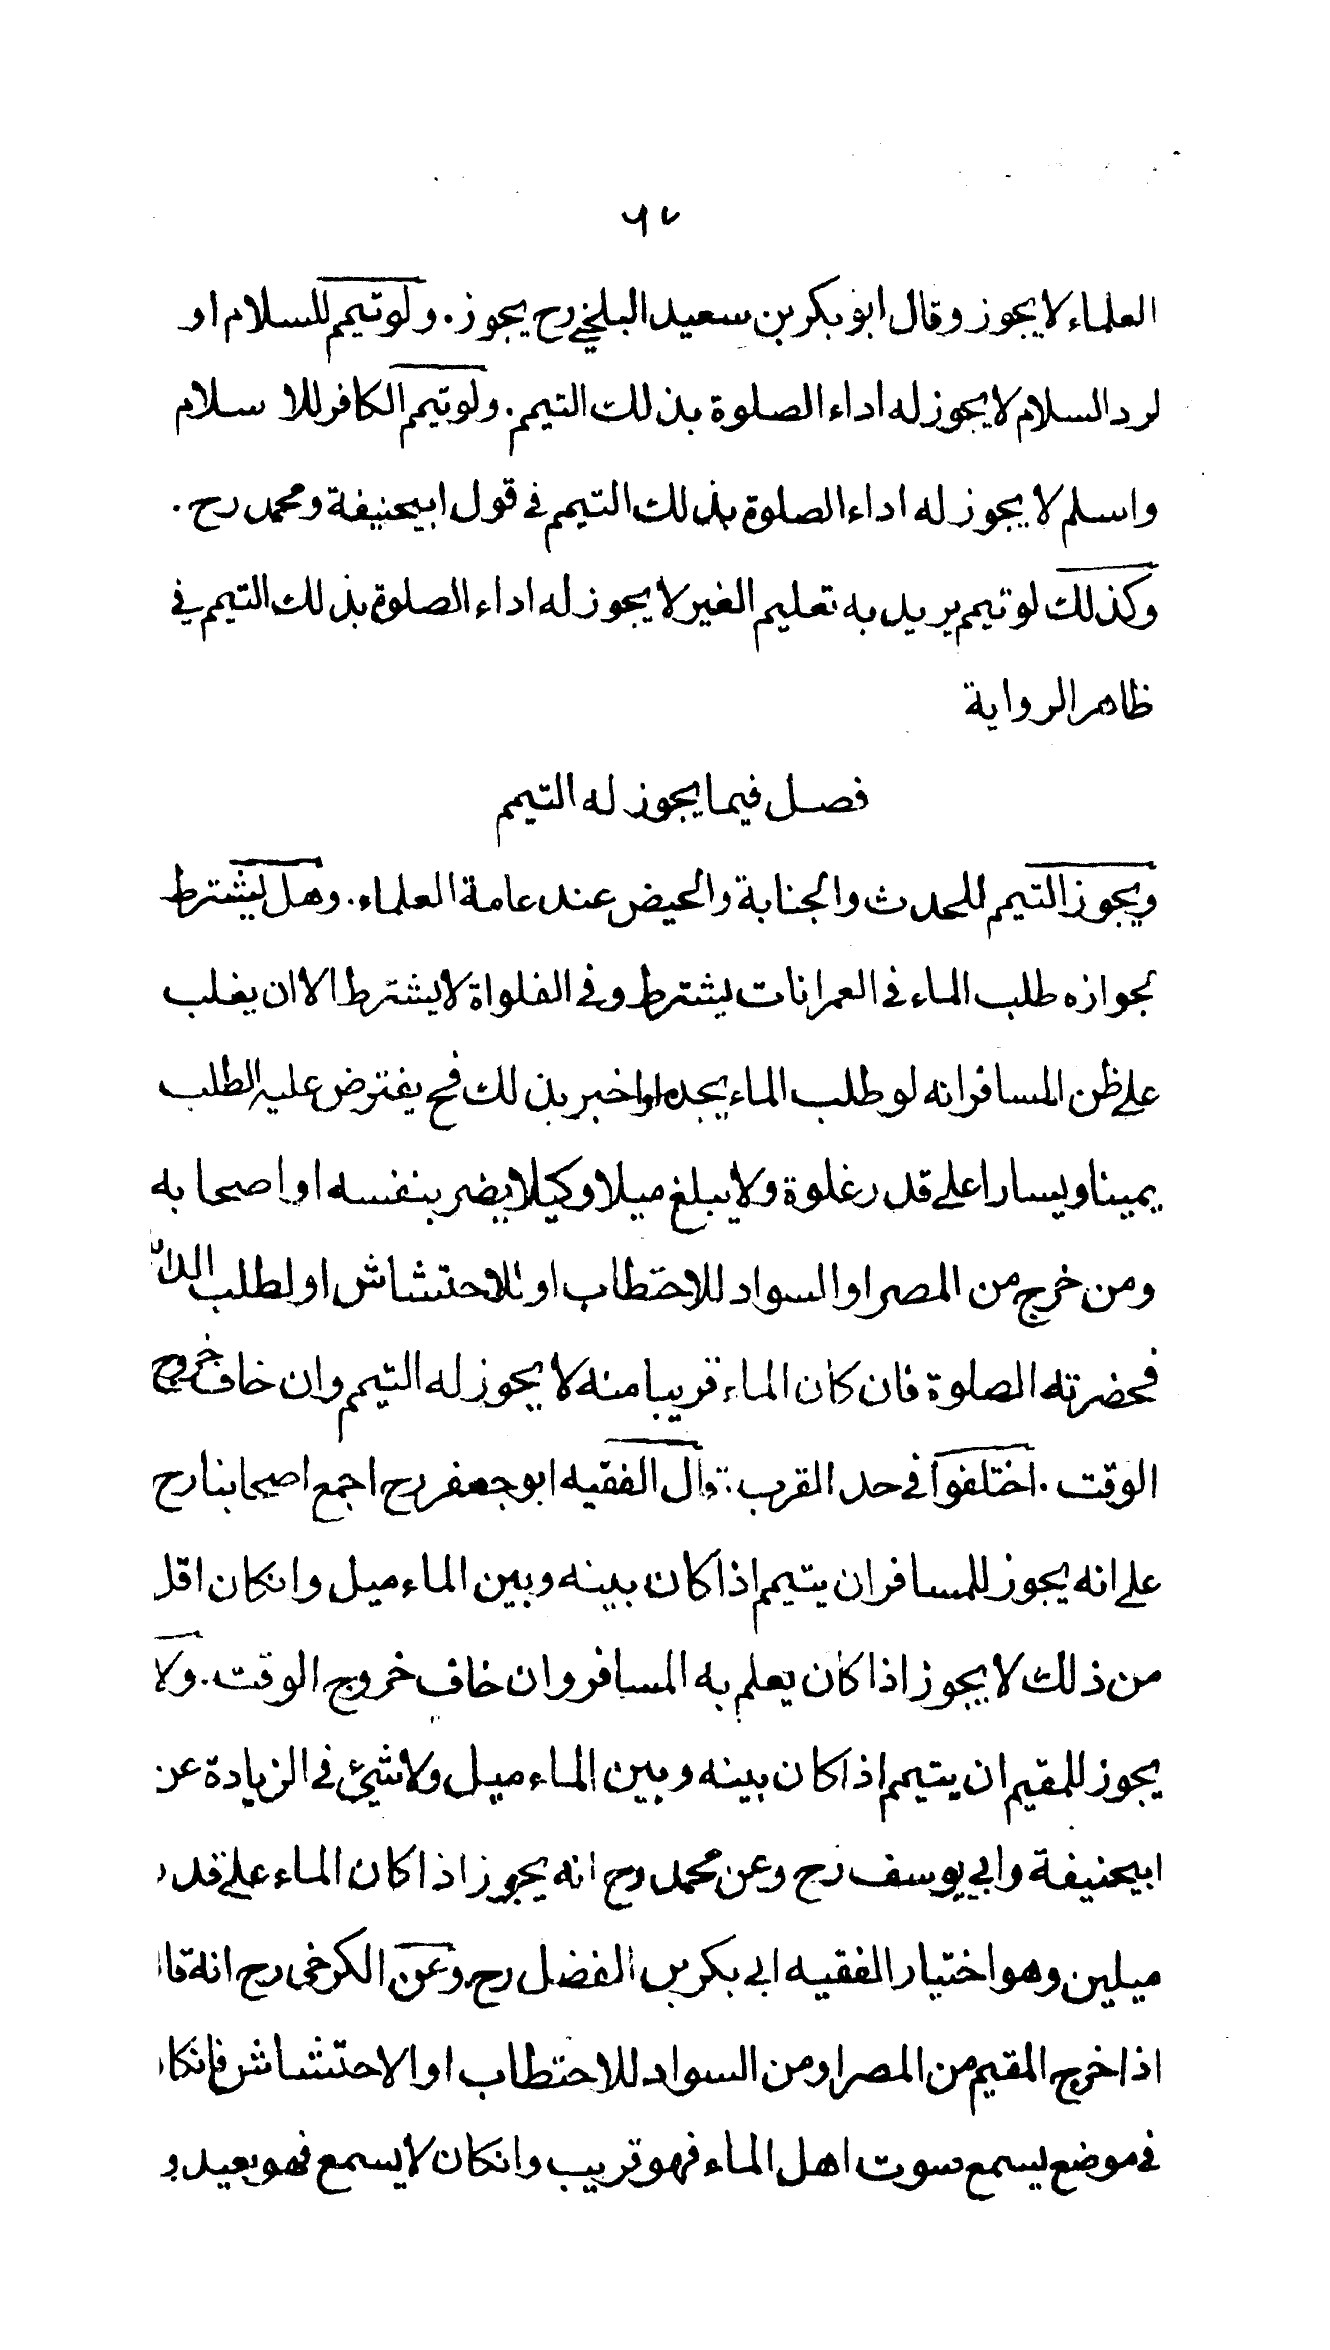 العلماء لا يجوز وقال ابو بكر بن سعيد البلخي رح يجوز. ولو تيمم للسلام او
لرد السلام لا يجوز له اداء الصلوة بذلك التيمم. ولو تيمم الكافر للاسلام
واسلم لا يجوز له اداء الصلوة بذلك التيمم في قول ابيحنيفة ومحمد رح.
وكذلك لو تيمم يريد به تعليم الغير لا يجوز له اداء الصلوة بذلك التيمم في
ظاهر الرواية
فصل فيما يجوز له التيمم
ويجوز التيمم للحدث والجنابة والحيض عند عامة العلماء. وهل يشترط
لجوازه طلب الماء في العمرانات يشترط وفي الفلواة لا يشترط الا ان يغلب
على ظن المسافر انه لو طلب الماء يجده او اخبر بذلك فح يفترض عليه الطلب
يمينا ويسارا على قدر غلوة ولا يبلغ ميلا وكيلا يضر بنفسه او اصحابه
ومن خرج من المصر او السواد للاحتطاب او للاحتشاش او لطلب
فحضرته الصلوة فان كان الماء قريبا منه لا يجوز له التيمم وان خاف خروج
الوقت. اختلفوا في حد القرب. قال الفقيه ابو جعفر رح اجمع اصحابنا رح
على انه يجوز للمسافر ان يتيمم اذا كان بينه وبين الماء ميل وانكان اقل
من ذلك لا يجوز اذا كان يعلم به المسافر وان خاف خروج الوقت. ولا
يجوز للمقيم ان يتيمم اذا كان بينه وبين الماء ميل ولا شئ في الزيادة عن
ابيحنيفة وابي يوسف رح وعن محمد رح انه يجوز اذا كان الماء على قدر
ميلين وهو اختيار الفقيه ابي بكر بن الفضل رح وعن الكرخي رح انه قا
اذا خرج المقيم من المصر او من السواد للاحتطاب او الاحتشاش فانكا
في موضع يسمع سوت اهل الماء فهو قريب وانكان لا يسمع فهو بعيد و